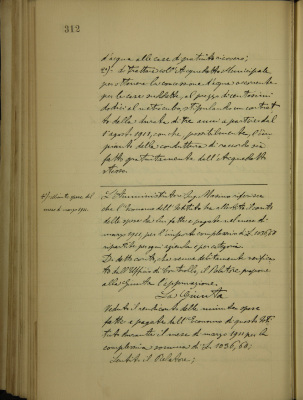 312
d'acqua alle case di questo ricovero;
2)- di trattare coll'Acquedotto Municipale
per ottenere la concessione d'acqua occorrente
per le case suddette, al prezzo di centesimi
dodici al metro cubo, stipulando un contratto
della durata di tre anni a partire dal
1° agosto 1911, con che possibilmente, l'im-
pianto della conduttura d'acqua sia
fatto gratuitamente dell'Acquedotto
stesso.
spese del
mese di marzo 1911.
L'Amministratore riferisce
che l'Economo dell'Istituto ha il conto
delle spese da lui fatte e pagate nel mese di
marzo 1911, per l'importo complessivo di L. 1036,60
ripartito per ogni azienda e per categoria.
Di detto conto, che venne debitamente verificato
dall'Ufficio di Controllo, il Relatore, propone
alla Giunta l'approvazione.
La Giunta
Veduto il rendiconto delle minute spese
fatte e pagate dall'Economo di questo Isti-
tuto durante il mese di marzo 1911 per la
complessiva somma di L. 1036,60;
Sentito il Relatore;